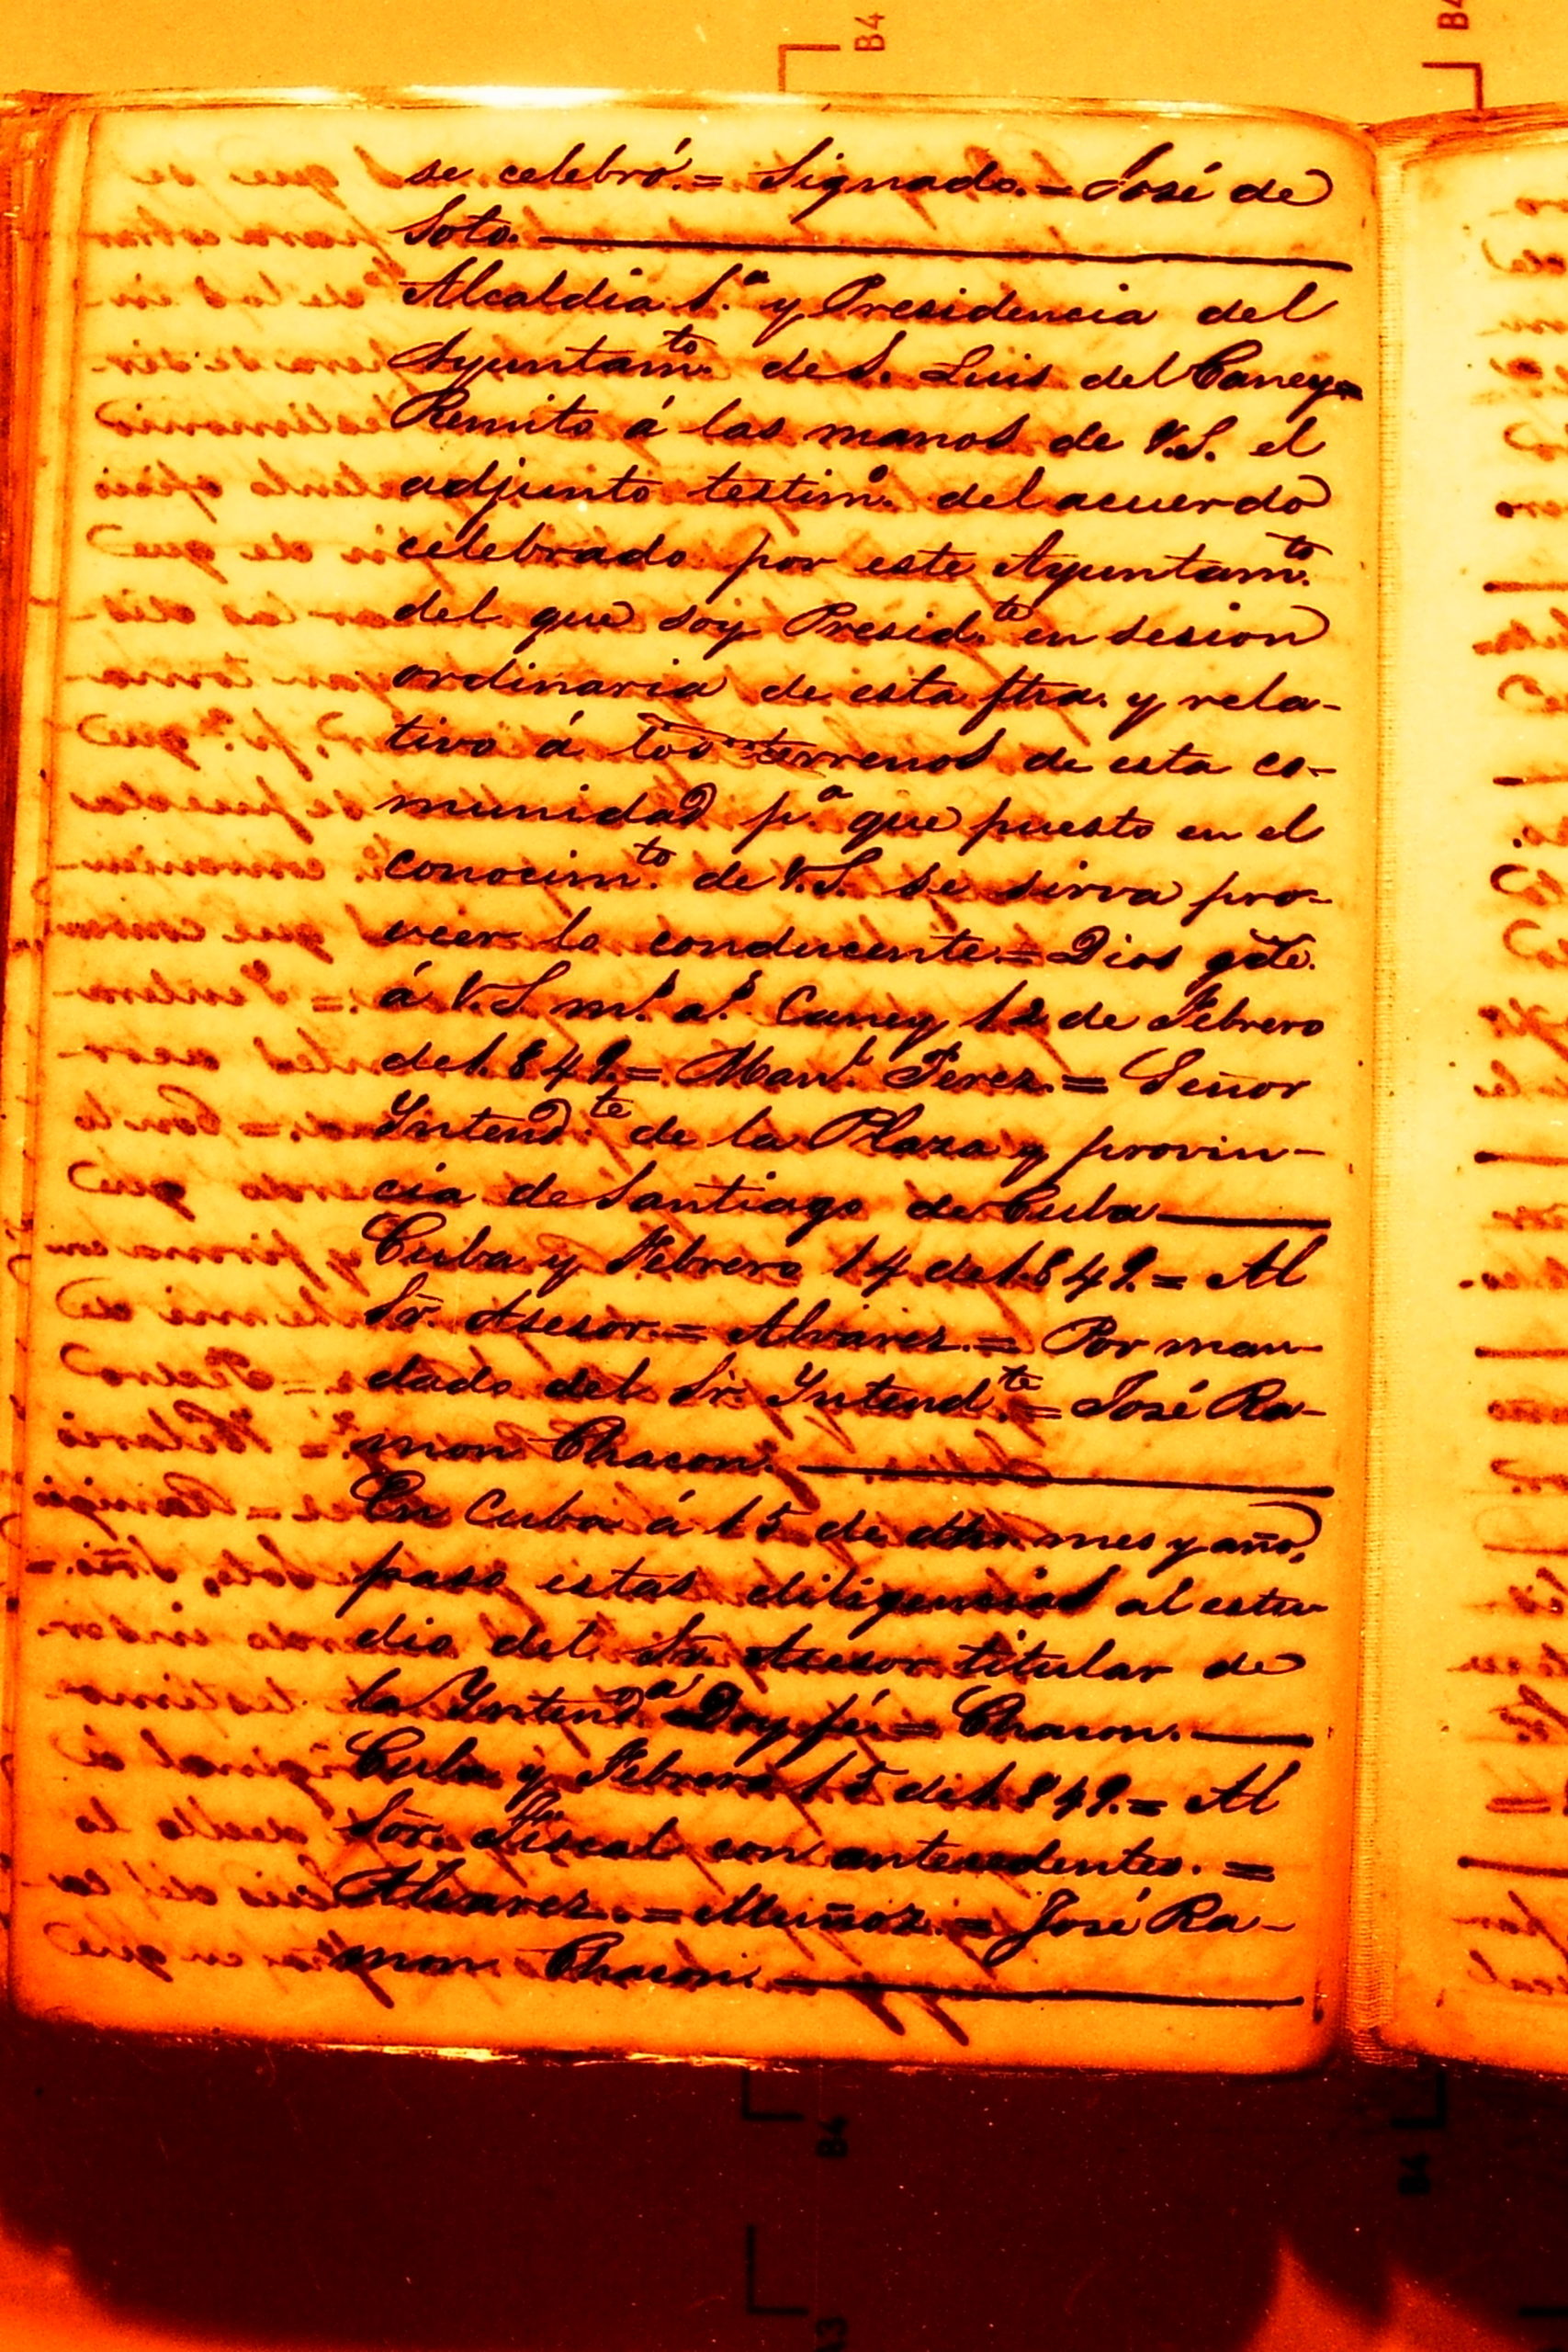 B4
B4
se celebró.= Signado.= José de
Soto.
Alcaldia 1.ª y Presidencia del
Ayuntam.to de S. Luis del Caney=
Remito á las manos de V.S. el
adjunto testim.o del acuerdo
celebrado por este Ayuntam.to
del que soy Presid.te en sesion
ordinaria de esta fha. y rela-
tivo á terrenos de esta co-
munidad p.a que puesto en el
conocim.to de V.S. se sirva pro-
veer lo conducente.= Dios gde.
á V.S. m.s a.s Caney 12 de Febrero
de 1.849.= Man.l Perez.= Señor
Yntend.te de la Plaza y provin-
cia de Santiago de Cuba
Cuba y Febrero 14 de 1.849.= Al
Sr. Asesor.= Alvarez.= Por man-
dado del Sr. Yntend.te= José Ra-
mon Chacon.
En Cuba á 15 de dho. mes y año,
paso estas diligencias al estu-
dio del Sr. Asesor titular de
la Yntend.a Doy fé= Chacon.
Cuba y Febrero 15 de 1.849.= Al
Sor. Fiscal con antecedentes.=
Alvarez.= Muñoz.= José Ra-
mon Chacon.
B4
B4
A3